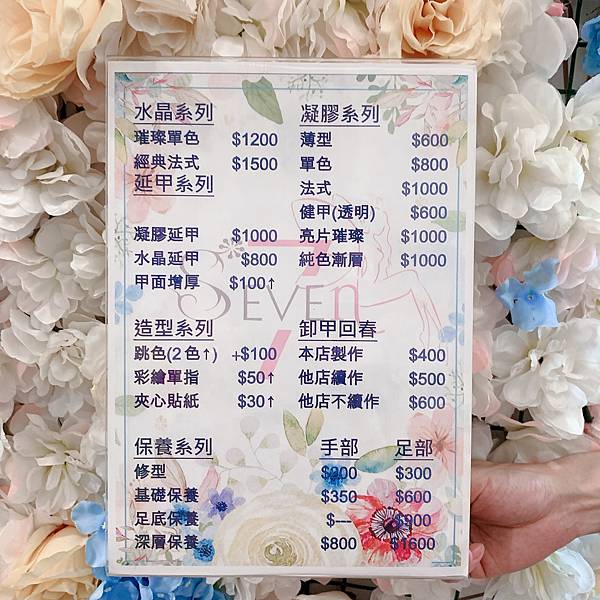 水晶系列
璀璨單色 $1200
經典法式 $1500
延甲系列
凝膠延甲 $1000
水晶延甲 $800
甲面增厚 $100↑
凝膠系列
薄型 $600
單色 $800
法式 $1000
健甲(透明) $600
亮片璀璨 $1000
純色漸層 $1000
7
SEVEN
造型系列
跳色(2色↑) +$100
彩繪單指 $50↑
夾心貼紙 $30↑
卸甲回春
本店製作 $400
他店續作 $500
他店不續作 $600
保養系列 手部 足部
修型 $200 $300
基礎保養 $350 $600
足底保養 $--- $900
深層保養 $800 $1600